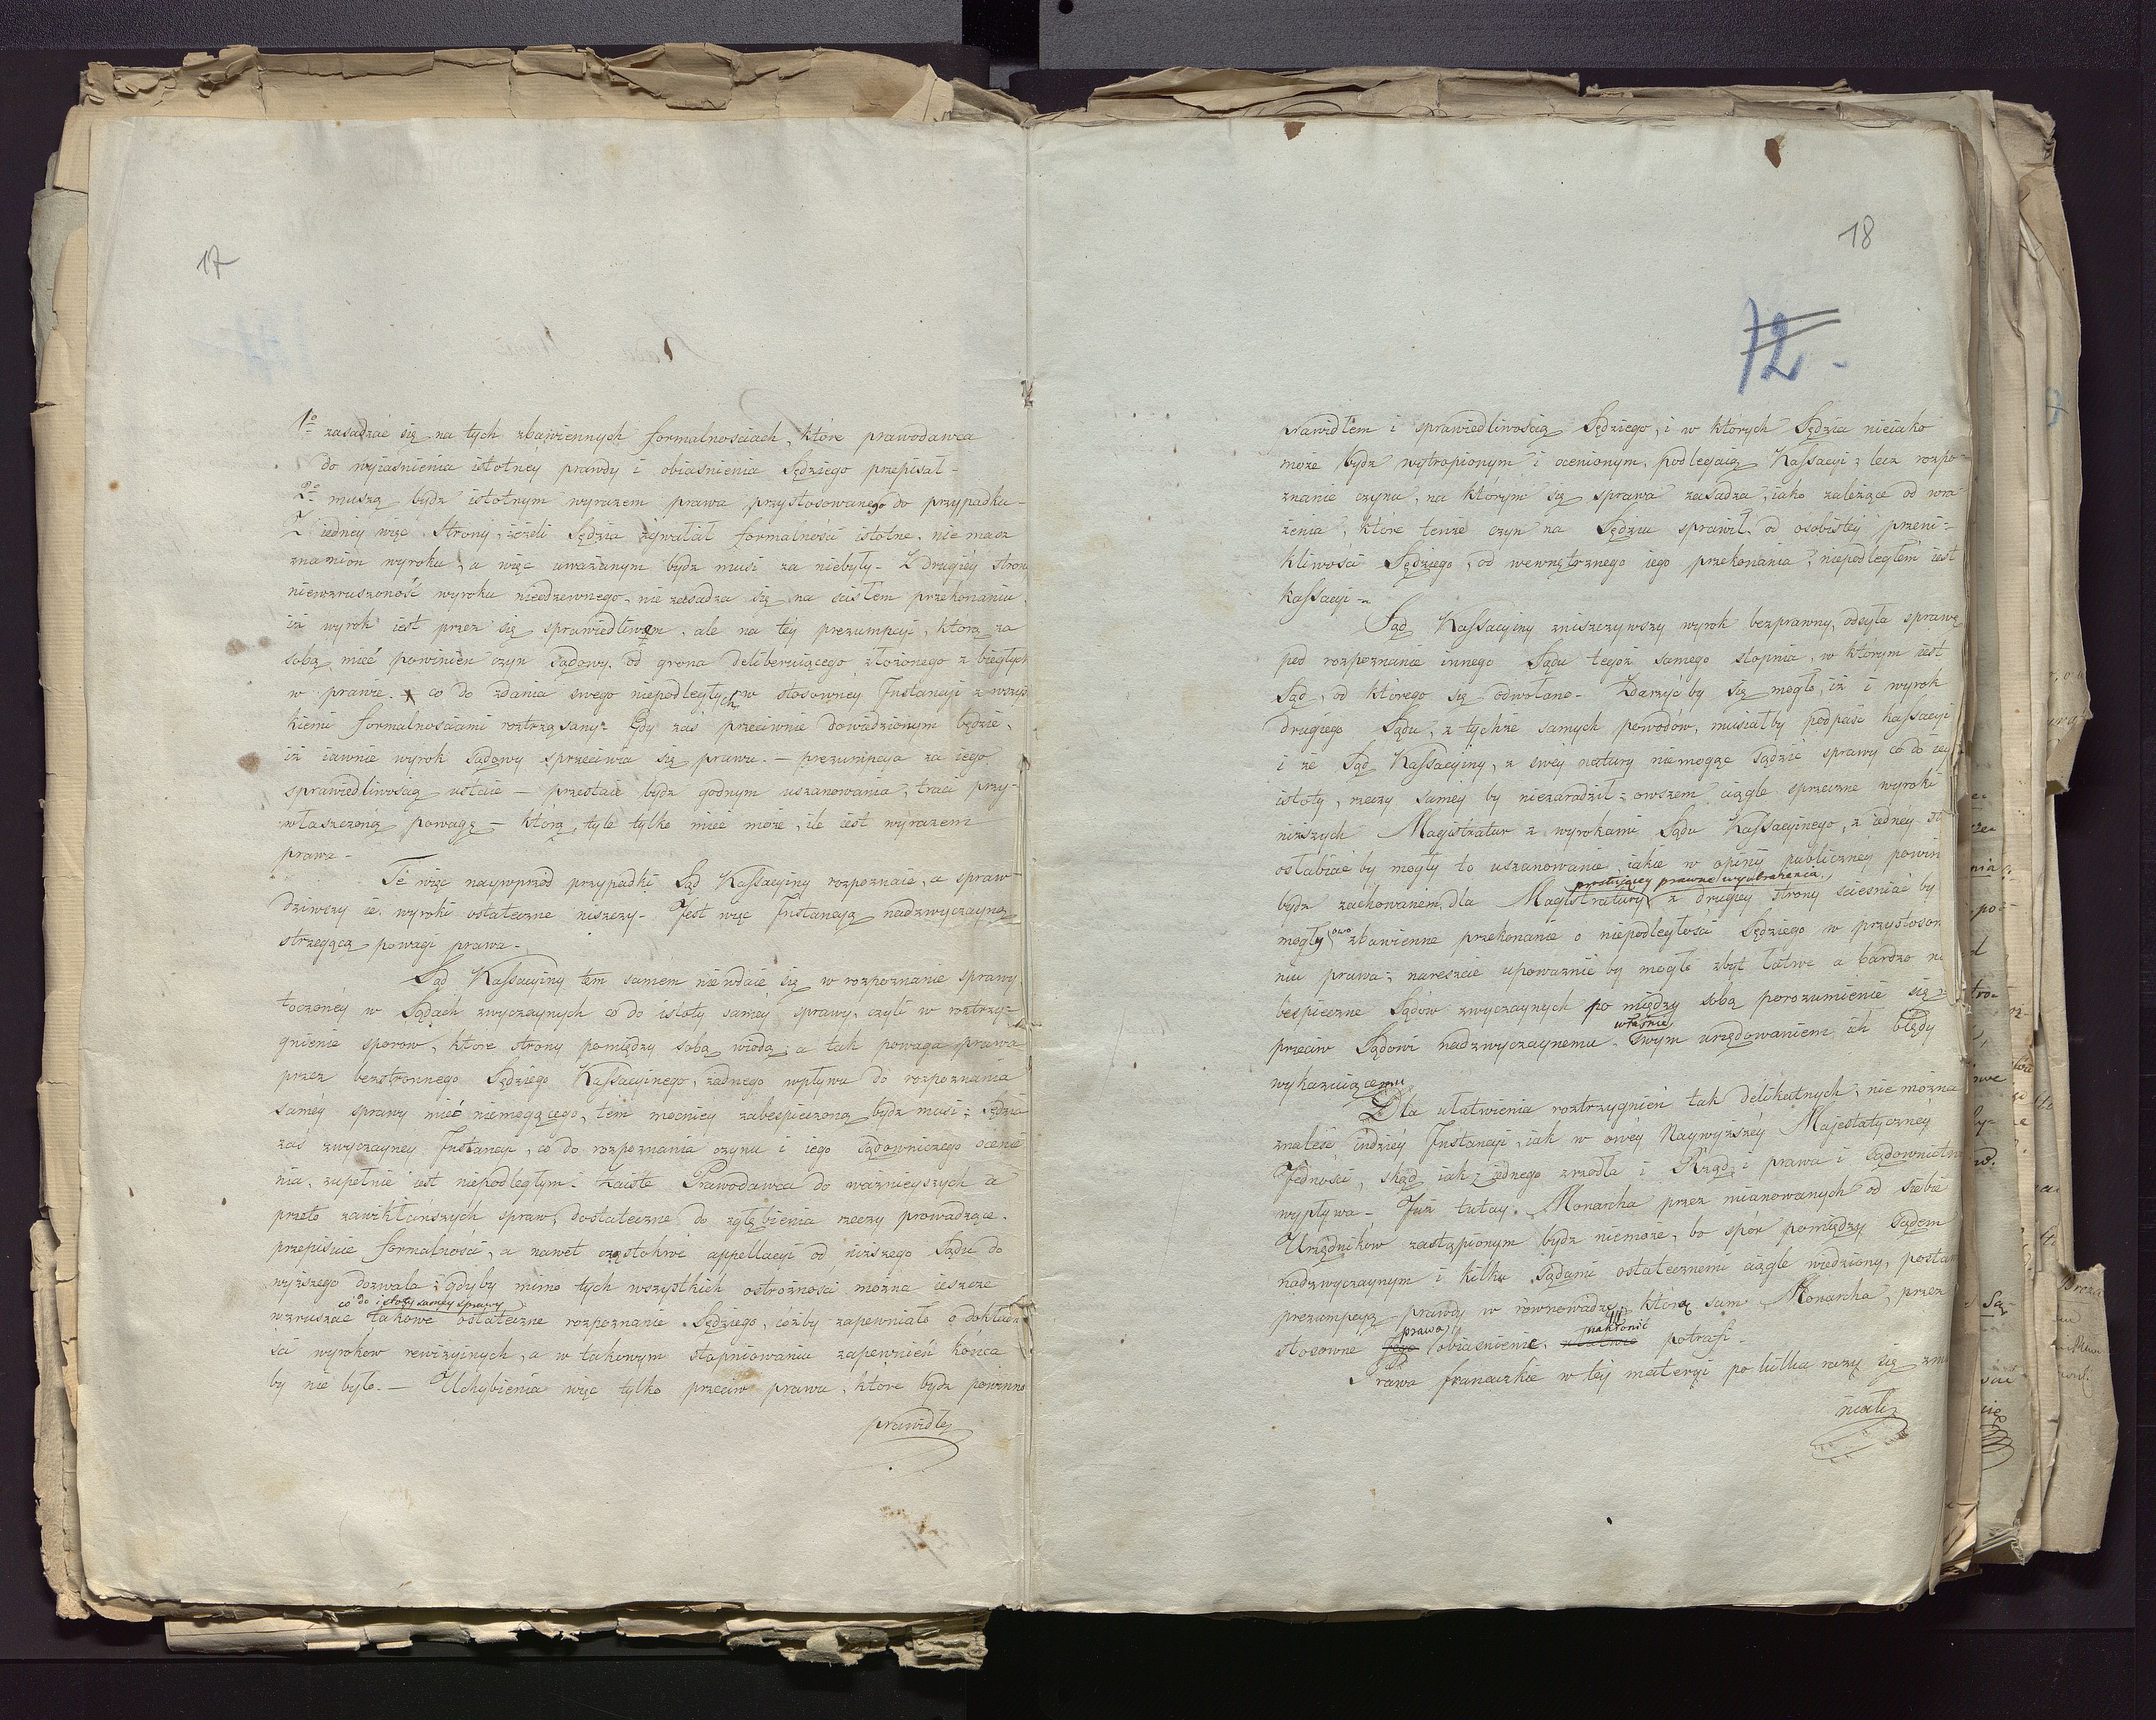 17
1º zasadzać się na tych zbawiennych formalnościach, które prawodawca
do wyiaśnienia istotnéy prawdy i obiaśnienia Sędziego przepisał -
2º muszą bydź istotnym wyrazem prawa przystosowanego do przypadku -
Z iednéy więc Strony, ieżeli Sędzia zgwałcił formalności istotne, nie masz
znamion wyroku, a więc uważanym bydź musi za niebyły - Z drugiéy stron
niewzruszoność wyroku nieodzewnego, nie zasadza się na ścisłem przekonaniu,
iż wyrok iest przez się sprawiedliwem, ale na téy prezumpcyi, którą za
sobą mieć powinien czyn Sądowy, od grona deliberuiącego złożonego z biegłych
w prawie, co do zdania swego niepodległych w stosownéy Instancyi z wszys
kiemi formalnościami roztrząsany - Gdy zaś przeciwnie dowiedzionym będzie,
iż iawnie wyrok Sądowy sprzeciwia się prawu. — prezumpcya za iego
sprawiedliwością ustaie — przestaie bydź godnym uszanowania, traci przy-
właszczoną powagę — którą, tyle tylko mieć może, ile iest wyrazem
prawa -
Te więc naywprzód przypadki Sąd Kassacyiny rozpoznaie, a spraw
dziwszy ie, wyroki ostateczne niszczy - Jest więc Instancyą nadzwyczayną
strzegącą powagi prawa -
Sąd Kassacyiny tem samém niewdaie się w rozpoznanie sprawy
toczonéy w Sądach zwyczaynych co do istoty saméy sprawy, czyli w roztrzy-
gnienie sporow, które strony pomiędzy sobą wiodą; a tak powaga prawa
przez bezstronnego Sędziego Kassacyinego, żadnego wpływu do rozpoznania
saméy sprawy mieć niemogącego, tem mocniey zabespieczoną bydź musi; Sędzia
zaś zwyczayney Instancyi, co do rozpoznania czynu i iego Sądowniczego ocenie
nia, zupełnie iest niepodległym - Zaiste Prawodawca do ważnieyszych a
przeto zawikłańszych spraw, dostateczne do zgłębienia rzeczy prowadzące
przepisuie formalności, a nawet częstokroć appellacyi od niższego Sądu do
wyższego dozwala; gdyby mimo tych wszystkich ostrożności można ieszcze
co do istoty saméy sprawy
wzruszać takowe ostateczne rozpoznanie Sędziego, cóżby zapewniało o dokładn
ści wyroków rewizyinych, a w takowym stopniowaniu zapewnień końca
by nie było. — Uchybienia więc tylko przeciw prawu, które bydź powinno
prawidłe
18
72 -
prawidłem i sprawiedliwością Sędziego, i w których Sędzia nieiako
może bydź wytropionym i ocenionym, podlegaią Kassacyi; lecz rozpo-
znanie czynu, na którym się sprawa zasadza, iako zależące od wra-
żenia, które tenże czyn na Sędziu sprawił, od osobistéy przeni-
kliwości Sędziego, od wewnętrznego iego przekonania, niepodległém iest
Kassacyi -
Sąd Kassacyiny zniszczywszy wyrok bezprawny, odsyła sprawę
pod rozpoznanie innego Sądu tegoż samego stopnia, w którym iest
Sąd, od którego się odwołano - Zdarzyć by się mogło, iż i wyrok
drugiego Sądu, z tychże samych powodów, musiałby podpaść kassacyi
i że Sąd Kassacyiny, z swéy natury niemogąc Sądzić sprawy co do iéy
istoty, rzeczy saméy by niezaradził; owszem ciągle sprzeczne wyroki
niższych Magistratur z wyrokami Sądu Kassacyinego, z iednéy st
osłabiać by mogły to uszanowanie, iakie w opinii publicznéy powin
prostuiącey prawne wyobrażenia,
bydź zachowaniem dla Magistratury z drugiey strony ścieśniać by
mogły owo zbawienne przekonanie o niepodległości Sędziego w przystosow
niu prawa; nareszcie upoważnić by mogło zbyt łatwe a bardzo ni
bespieczne Sądów zwyczaynych po między sobą porozumienie się
właśnie
przeciw Sądowi nadzwyczaynemu, swym urzędowaniem ich błędy
wykazuiącemu
Dla ułatwienia roztrzygnień tak delikatnych, nie można
znaleść indziéy Instancyi, iak w owéy Naywyższéy Majestatycznéy
Jedności, skąd iak z iednego zrzodła i Rząd i prawa i Sądownictwo
wypływa - Już tutay Monarcha przez mianowanych od siebie
Urzędników zastąpionym bydź niemoże, bo spór pomiędzy Sądem
nadzwyczaynym i kilku Sądami ostatecznemi ciągle wiedziony, postaw
prezumpcyą prawdy w równowadze, którą sam Monarcha, przez
prawa nakłonić
stosowne iego obiaśnienie, ułatwić potrafi -
Prawa francuzkie w téj materyi po kilka razy się zmi
niały